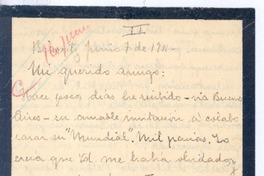 II
junio 1 de 191
Mi querido amigo:
Hace pocos días he recibido - vía Buenos
Aires - su amable invitación á colabo
rar a su "Mundial". Mil gracias. Yo
creía que Ud. me había olvidado, y